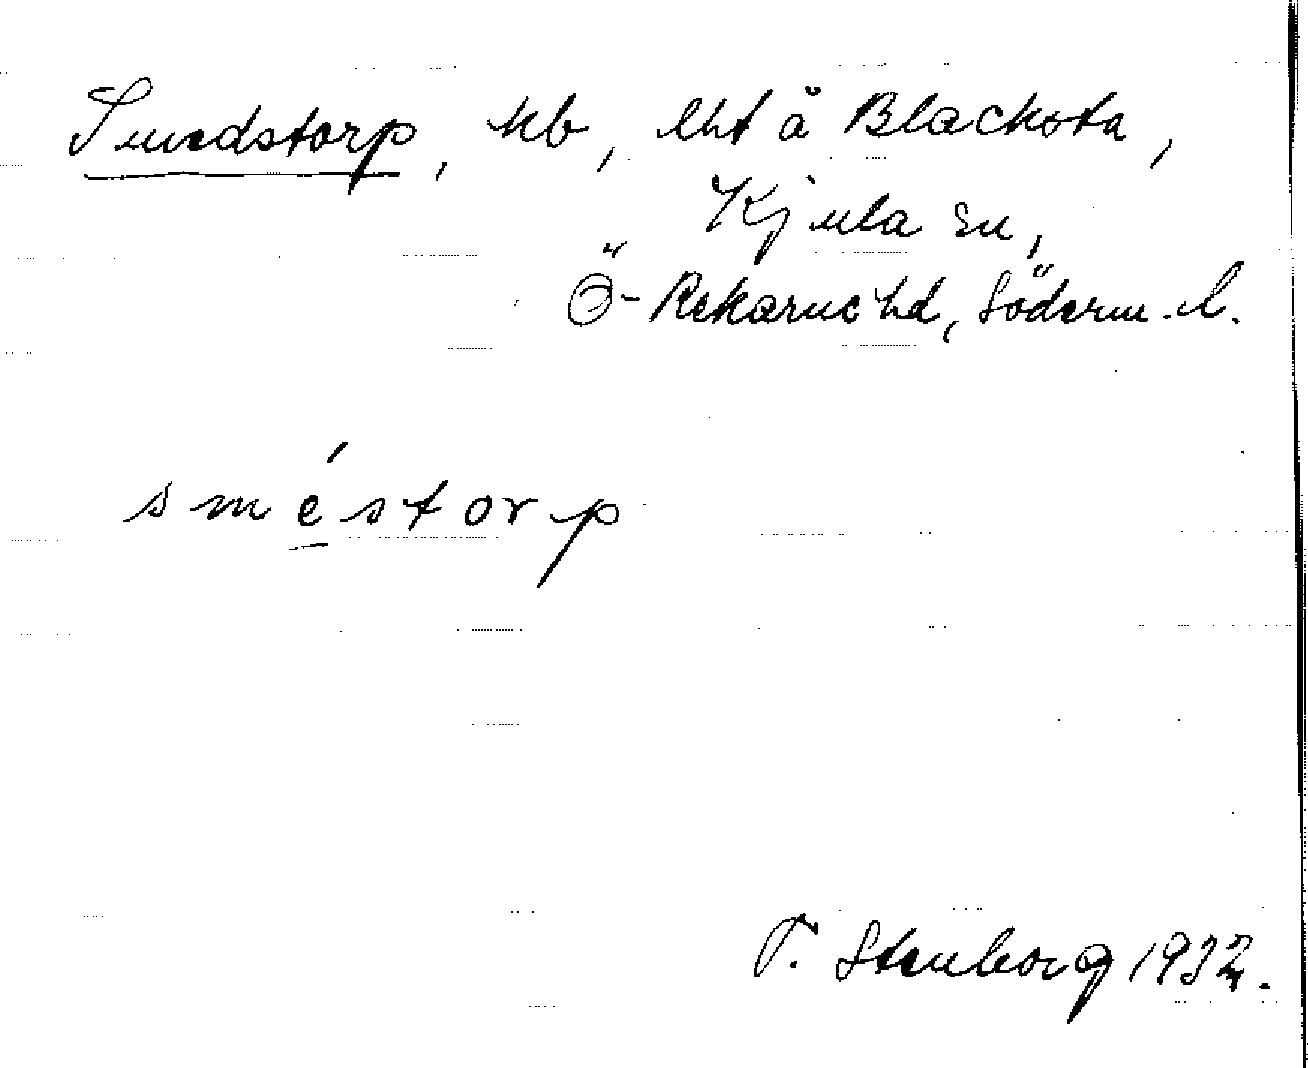 Smedstorp, kb, lht å Blacksta,
Kjula sn,
Ö-Rekarne hd, Söderm. l.
sméstorp
T. Stenborg 1932.